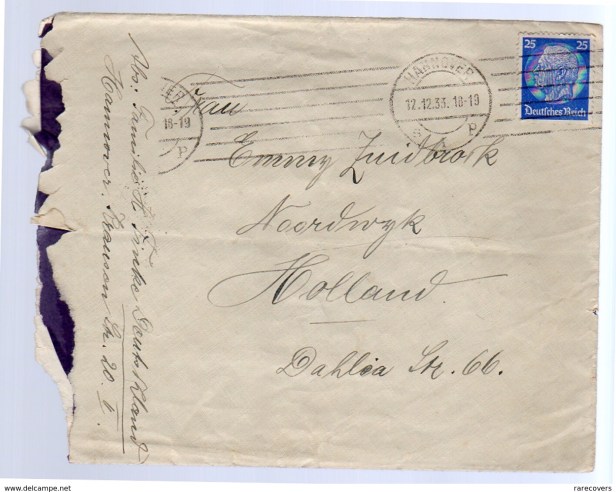 HANNOVER
12.12.33.18-19
p
18-19
p
25 25
Deutsches Reich
Frau
Emmy Zuidbrock
Noordwyk
Holland.
Dahlia Str. 66.
Abs: Familie A. Finke Deutschland
Hannover. Str. 20. II.
www.delcampe.net
rarecovers